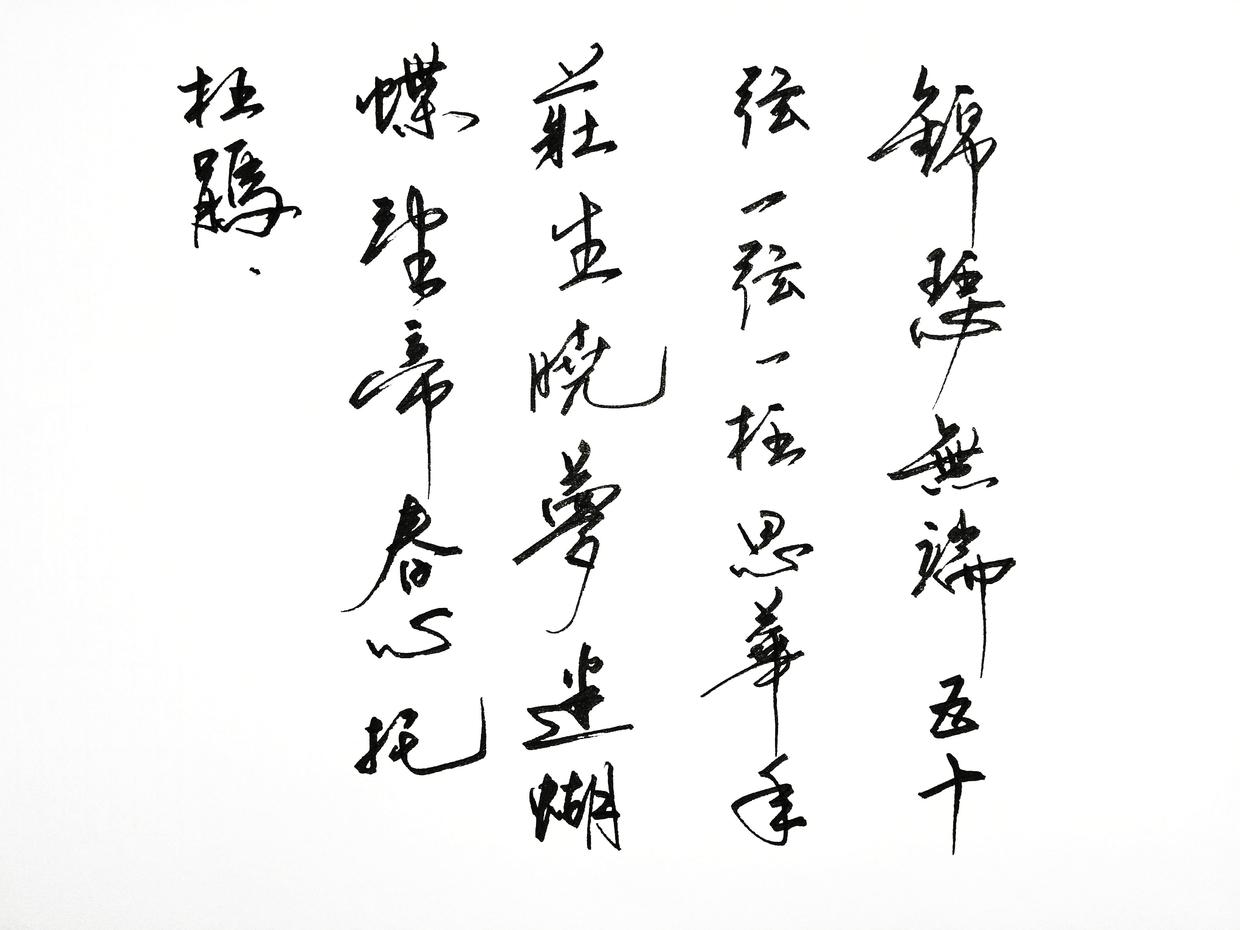 錦瑟無端五十
弦一弦一柱思華年
莊生曉夢迷蝴
蝶望帝春心托
杜鵑